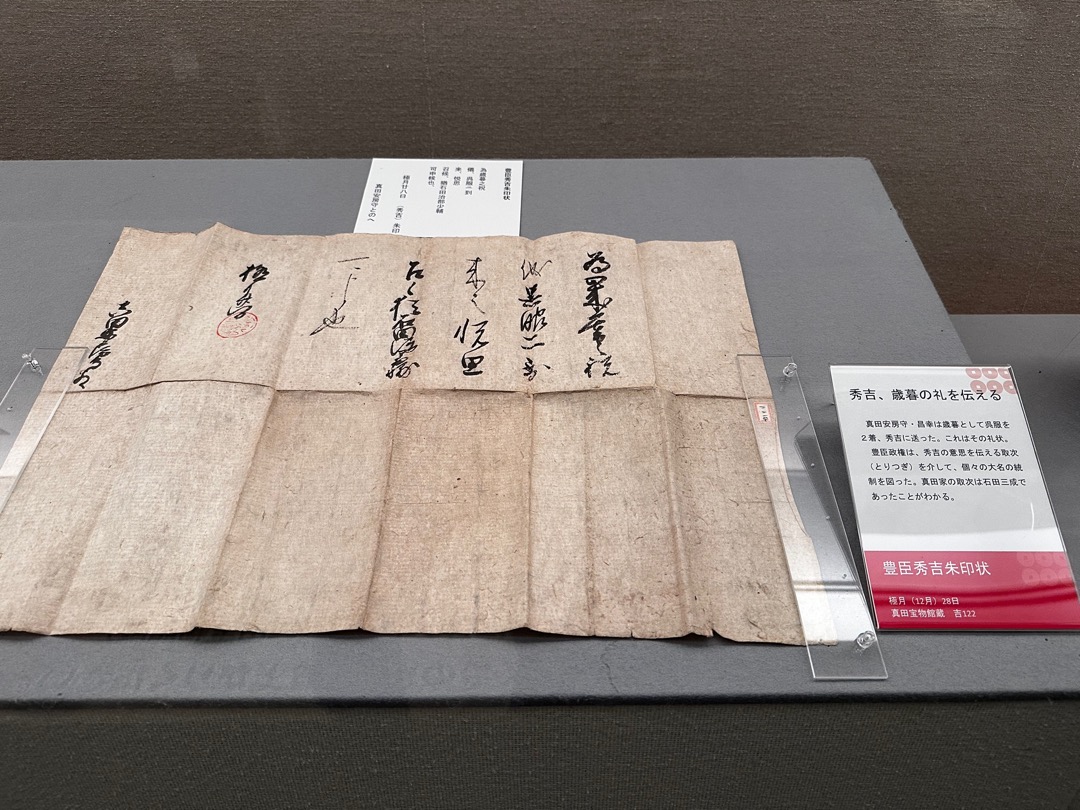 豊臣秀吉朱印状
為歳暮之祝
儀、呉服二到
来、悦思
召候、猶石田治部少輔
可申候也、
極月廿八日 (秀吉)朱印
真田安房守とのへ
為歳暮之祝
儀呉服二到
来之悦思
召候猶石田治部少輔
可申候也
極月廿八日
真田安房守とのへ
秀吉、歳暮の礼を伝える
真田安房守・昌幸は歳暮として呉服を
2着、秀吉に送った。これはその礼状。
豊臣政権は、秀吉の意思を伝える取次
(とりつぎ)を介して、個々の大名の統
制を図った。真田家の取次は石田三成で
あったことがわかる。
豊臣秀吉朱印状
極月(12月)28日
真田宝物館蔵 吉122